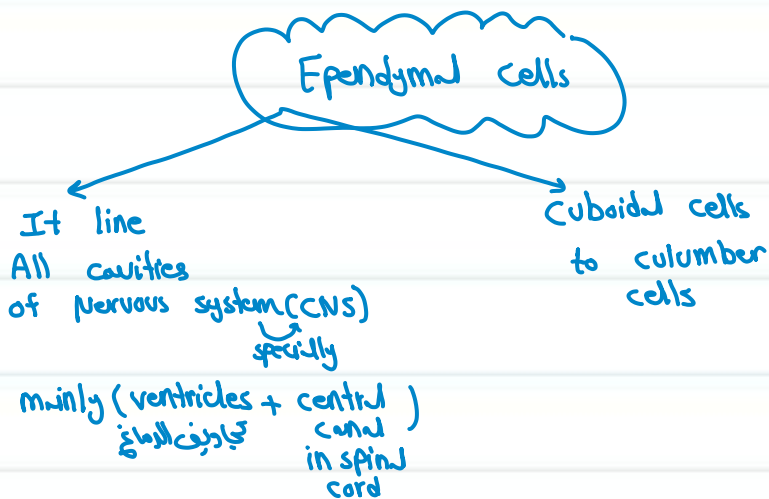 Ependymal cells
It line
All cavities
of Nervous system (CNS)
specially
mainly (ventricles + central canal in spinal cord)
تجاويف الدماغ
Cuboidal cells
to culumber
cells